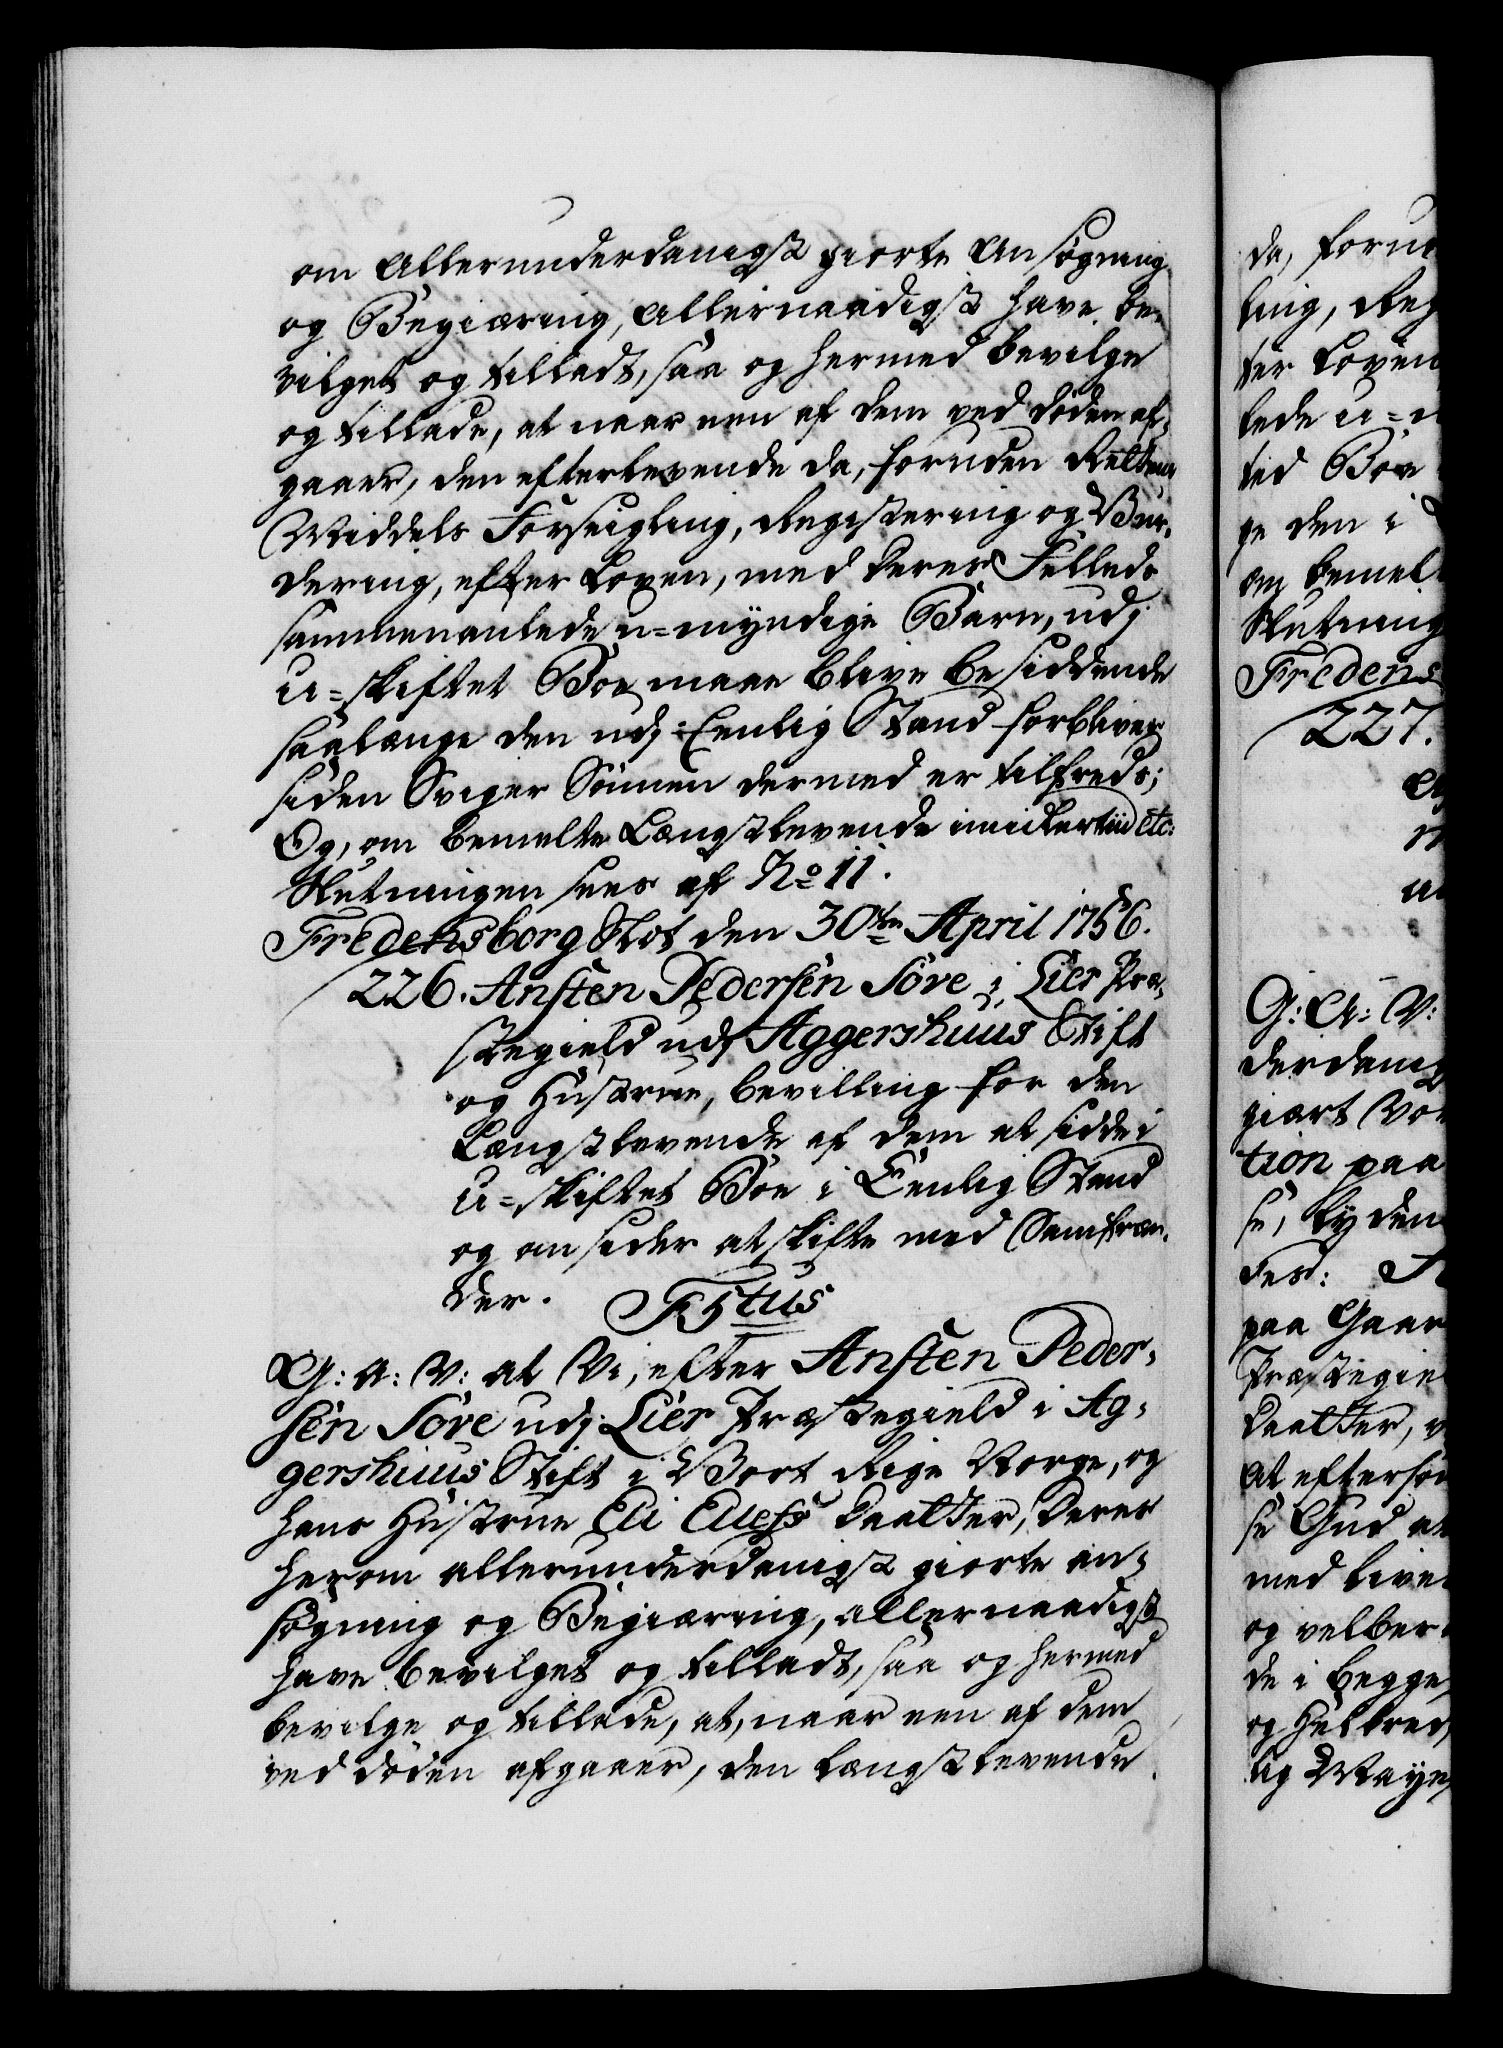 om allerunderdanigst giorte Ansøgning
og Begiæring, allernaadigst have be-
vilget og tilladt, saa og hermed bevilge
og tillade, at naar een af dem ved døden af-
gaaer, den efterlevende da, foruden Rettens
Middels Forseigling, Registering og Vur-
dering, efter Loven, med deres Fælleds
sammenavlede u=myndige Børn, udj
u=skiftet Boe maae blive besiddende
saalænge den udj Eenlig Stand forbliver
siden Sviger Sønnen dermed er tilfreds;
Og, om bemelte Længstlevende imidlertiid etc:
Slutningen sees af No 11.
Fredensborg Slot den 30te April 1756.
226. Ansten Pedersen Søve i Lier Præ-
stegield udj Aggershuus Stift
og Hustrue, bevilling for den
Længstlevende af dem at sidde i
u=skiftet Boe i Eenlig Stand
og ansider at skifte med Samfræn-
der.
F5tus
G: A: V: at Vi, efter Ansten Peder-
sen Søve udj Lier Præstegield i Ag-
gershuus Stift i Vort Rige Norge, og
hans Hustrue Eli Ellefs Daatter, deres
herom allerunderdanigst giorte an-
søgning og Begiæring, allernaadigst
have bevilget og tilladt, saa og hermed
bevilge og tillade, at, naar een af dem
ved døden afgaaer, den længstlevende
da, foru
ling, Reg
ter Loven
lede u=
ted Boe
ge den i
om bemel
Slutning
Fredens
227.
G: A: V:
derdanig
giært Vo
tion paa
se, ty den
Fes:
paa Gaar
Præstegie
Daatter, v
at efterso
se Gud a
med live
og velber
de i begge
og Helbred,
lig Maye